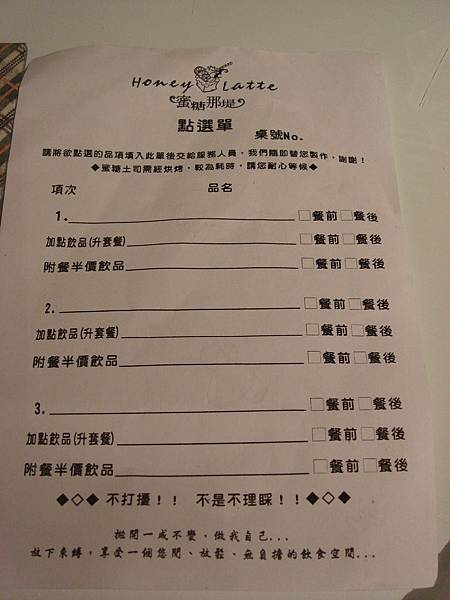 Honey Latte
蜜糖那堤
點選單
桌號No.
請將欲點選的品項填入此單後交給服務人員，我們隨即替您製作，謝謝！
◆蜜糖土司需經烘烤，較為耗時，請您耐心等候◆
項次 品名
1. □餐前□餐後
加點飲品(升套餐) □餐前□餐後
附餐半價飲品 □餐前□餐後
2. □餐前□餐後
加點飲品(升套餐) □餐前□餐後
附餐半價飲品 □餐前□餐後
3. □餐前□餐後
加點飲品(升套餐) □餐前□餐後
附餐半價飲品 □餐前□餐後
◆◇◆ 不打擾！！ 不是不理睬！！◆◇◆
拋開一成不變，做我自己...
放下束縛，享受一個悠閒、放鬆、無負擔的飲食空間...